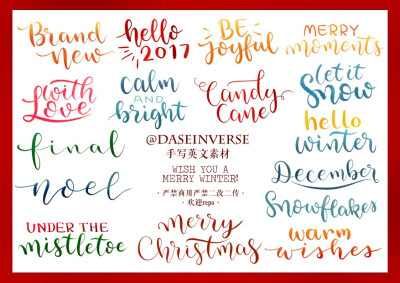 Brand
new
hello
2017
BE
Joyful
MERRY
moments
with
Love
calm
AND
bright
Candy
Cane
let it
Snow
final
@DASEINVERSE
手写英文素材
WISH YOU A
MERRY WINTER!
·严禁商用严禁二改二传·
·欢迎repo·
hello
winter
noel
December
Snowflakes
UNDER THE
mistletoe
Merry
Christmas
warm
wishes